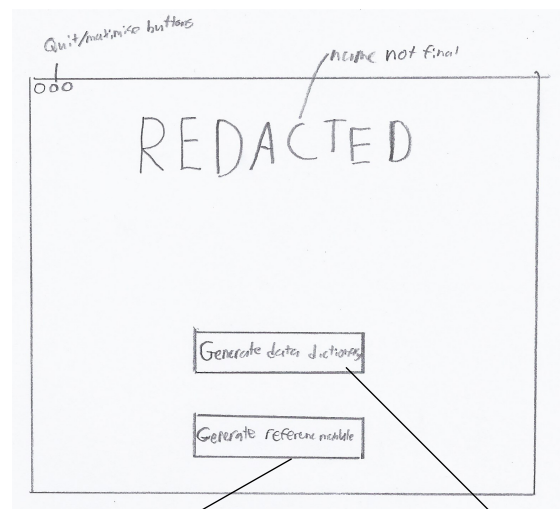 Quit/maximise buttons
name not final
REDACTED
Generate data dictionary
Generate reference